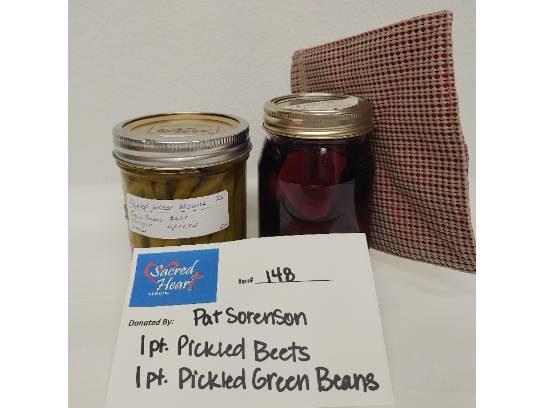 Pickled Green Beans
Green Beans Salt
Vinegar Spices
Sacred
Heart
Item# 148
Donated By: Pat Sorenson
1 pt. Pickled Beets
1 pt. Pickled Green Beans